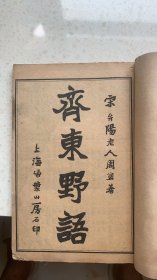 宋弁陽老人周密著
齊東野語
上海掃葉山房石印